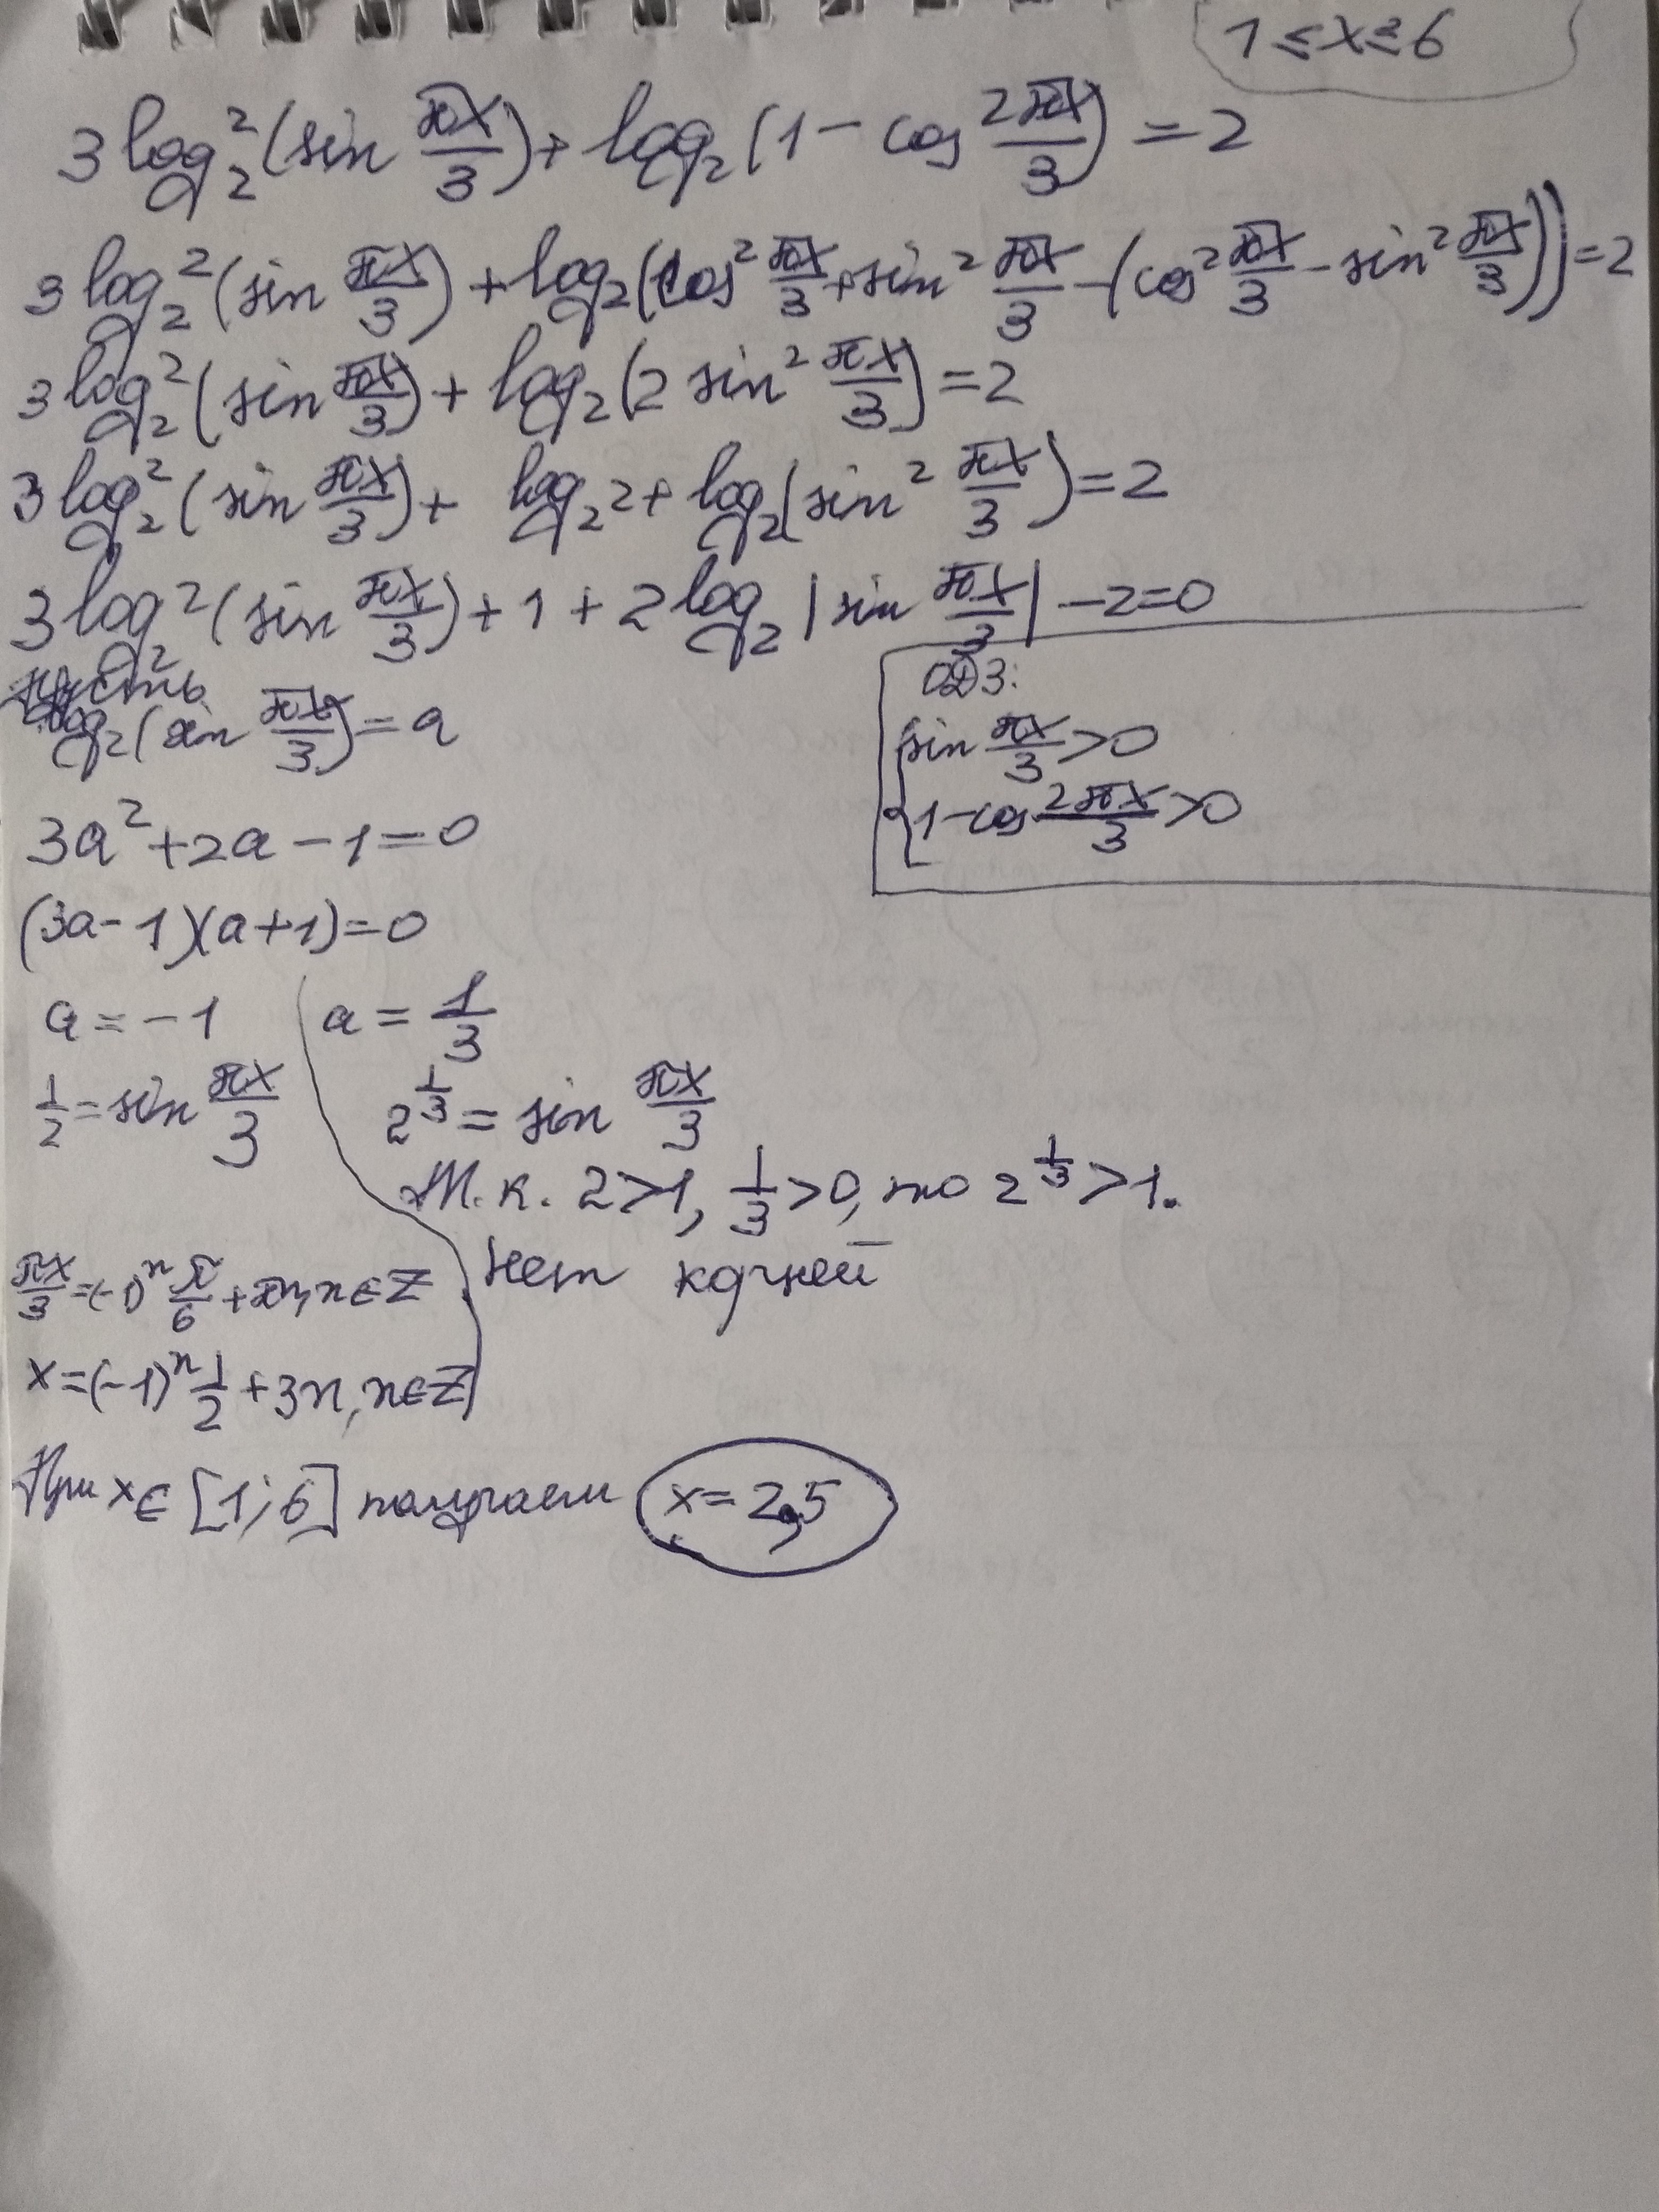 1 ≤ x ≤ 6
3 log₂²(sin πx/3) + log₂(1 − cos 2πx/3) = 2
3 log₂²(sin πx/3) + log₂(cos² πx/3 + sin² πx/3 − (cos² πx/3 − sin² πx/3)) = 2
3 log₂²(sin πx/3) + log₂(2 sin² πx/3) = 2
3 log₂²(sin πx/3) + log₂2 + log₂(sin² πx/3) = 2
3 log₂²(sin πx/3) + 1 + 2 log₂|sin πx/3| − 2 = 0
ОДЗ:
sin πx/3 > 0
1 − cos 2πx/3 > 0
пусть
log₂(sin πx/3) = a
3a² + 2a − 1 = 0
(3a − 1)(a + 1) = 0
a = −1
1/2 = sin πx/3
πx/3 = (−1)ⁿ π/6 + πn, n ∈ Z
x = (−1)ⁿ 1/2 + 3n, n ∈ Z
a = 1/3
2^(1/3) = sin πx/3
Т.к. 2 > 1, 1/3 > 0, то 2^(1/3) > 1.
Нет корней
При x ∈ [1; 6] получаем x = 2,5